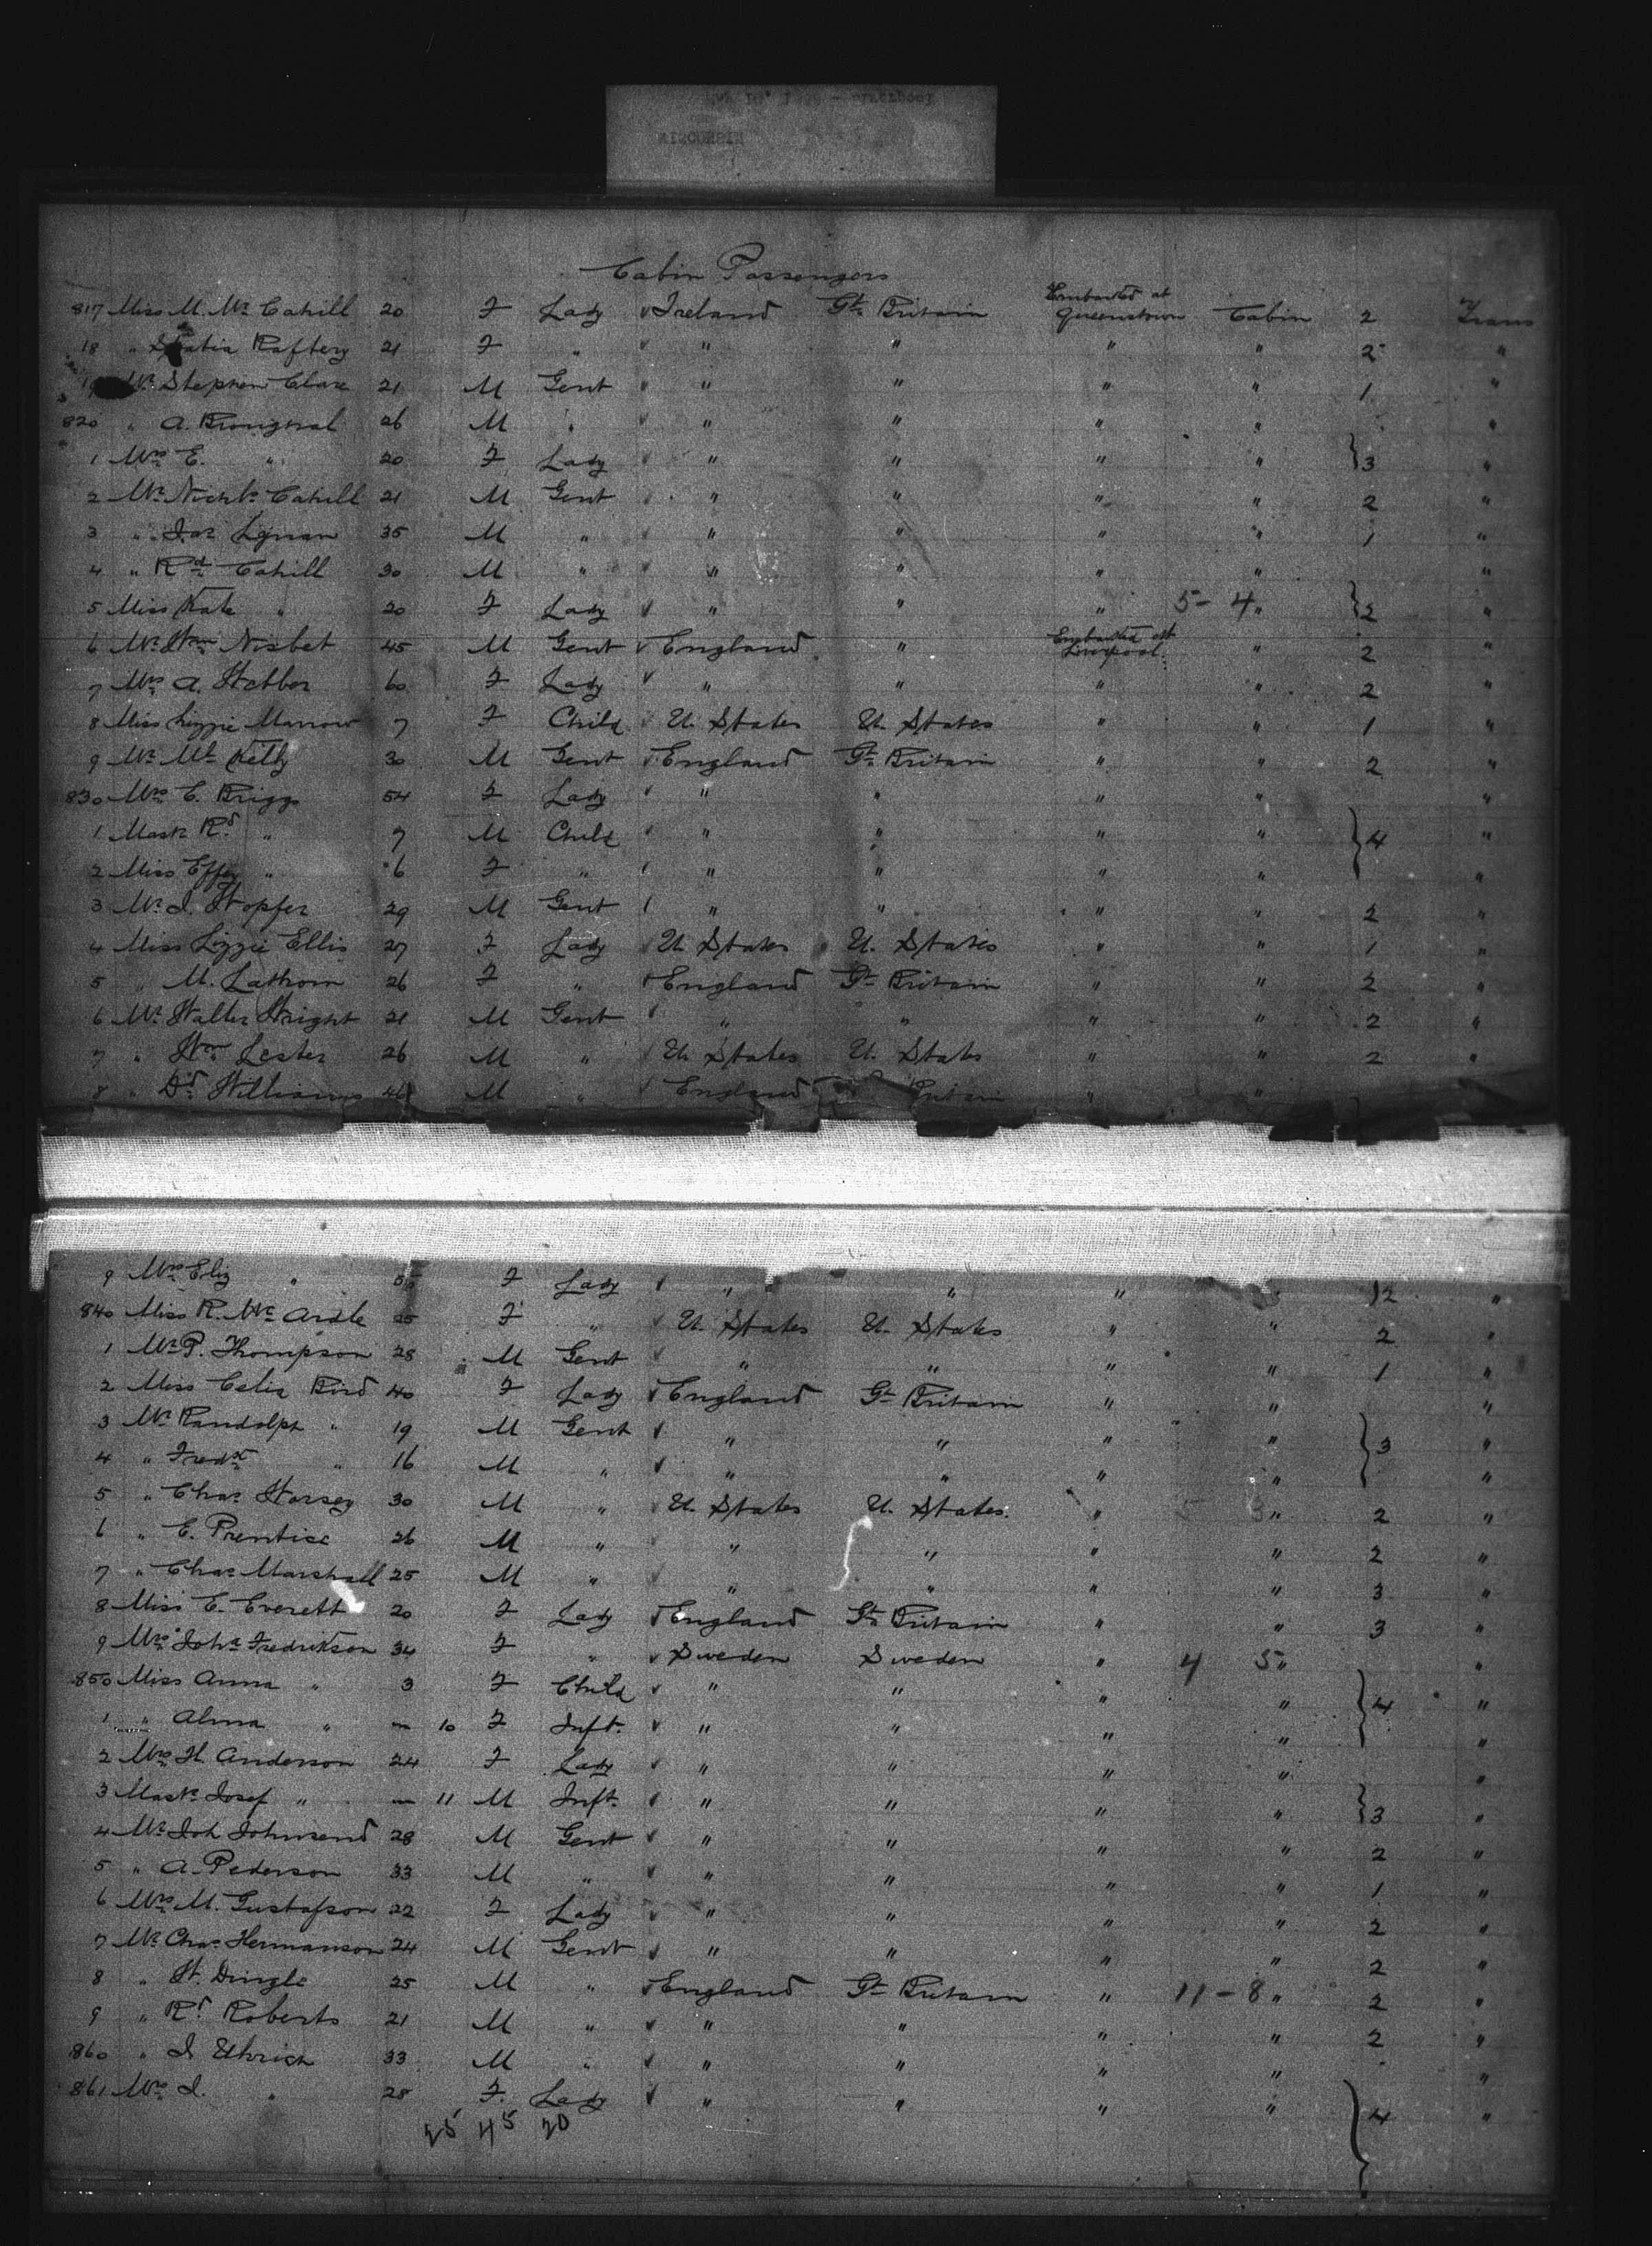 WISCONSIN
Cabin Passengers
817 Miss M. Mc Cahill 20 F Lady Ireland Gt. Britain Embarked at Queenstown Cabin 2 Trans
18 " Statia Raftery 21 F " " " " " 2 "
19 Mr. Stephen Clare 21 M Gent " " " " 1 "
820 " A. 26 M " " " " " "
1 Mrs E. " 20 F Lady " " " " 3 "
2 Mr. Nichls. Cahill 21 M Gent " " " " 2 "
3 " Jas Lynam 35 M " " " " " 1 "
4 " Rd. Cahill 30 M " " " " " "
5 Miss Kate " 20 F Lady " " " 5-4 " 2 "
6 Mr. Wm Nisbet 45 M Gent England " Embarked at Liverpool " 2 "
7 Mrs A. Webber 60 F Lady " " " " 2 "
8 Miss Lizzie Marrow 7 F Child U. States U. States " " 1 "
9 Mr. Ml. Kelly 30 M Gent England Gt. Britain " " 2 "
830 Mrs C. Briggs 54 F Lady " " " " "
1 Mastr Rd. " 7 M Child " " " " 4 "
2 Miss Effey " 6 F " " " " " "
3 Mr. J. Hopfer 29 M Gent " " " " 2 "
4 Miss Lizzie Ellis 27 F Lady U. States U. States " " 1 "
5 " M. Lathom 26 F " England Gt. Britain " " 2 "
6 Mr. Walter Wright 21 M Gent " " " " 2 "
7 " Wm Lester 26 M " U. States U. States " " 2 "
8 " Dd. Williams 46 M " England Britain " "
9 Mrs Eliz " 55 F Lady " " " " 2 "
840 Miss R. Mc Ardle 25 F " U. States U. States " " 2 "
1 Mr. P. Thompson 28 M Gent " " " " 1 "
2 Miss Celia Bird 40 F Lady England Gt. Britain " " "
3 Mr. Randolph " 19 M Gent " " " " 3 "
4 " Fredk " 16 M " " " " " "
5 " Chas. Horsey 30 M " U. States U. States " 5 3 " 2 "
6 " E. Prentice 26 M " " " " " 2 "
7 " Chas. Marshall 25 M " " " " " 3 "
8 Miss E. Everett 20 F Lady England Gt. Britain " " 3 "
9 Mrs Joha. Fredrikson 34 F " Sweden Sweden " 4 5 " "
850 Miss Anna " 3 F Child " " " " 4 "
1 " Alma " — 10 F Inft. " " " " "
2 Mrs H. Anderson 24 F Lady " " " " "
3 Mastr. Josef " — 11 M Inft. " " " " 3 "
4 Mr. Joh Johnsend 28 M Gent " " " " 2 "
5 " A. Pederson 33 M " " " " " 1 "
6 Mrs M. Gustafson 22 F Lady " " " " 2 "
7 Mr. Chas. Hermanson 24 M Gent " " " " 2 "
8 " W. Dingle 25 M " England Gt. Britain " 11-8 " 2 "
9 " Rd. Roberts 21 M " " " " " 2 "
860 " J. Uhrich 33 M " " " " " "
861 Mrs J. " 28 F. Lady " " " " 4 "
25 45 20